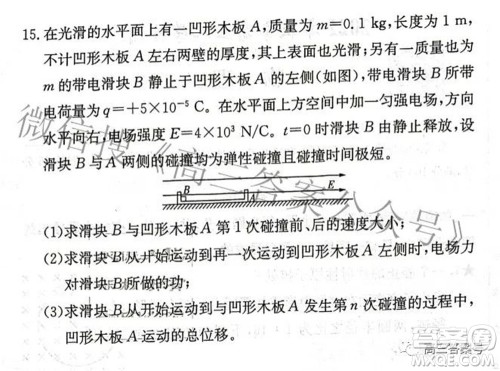 15.在光滑的水平面上有一凹形木板 A,质量为 m=0.1 kg,长度为 1 m,
不计凹形木板 A 左右两壁的厚度,其上表面也光滑;另有一质量也为
m 的带电滑块 B 静止于凹形木板 A 的左侧(如图),带电滑块 B 所带
电荷量为 q=+5×10⁻⁵ C. 在水平面上方空间中加一匀强电场,方向
水平向右,电场强度 E=4×10³ N/C. t=0 时滑块 B 由静止释放,设
滑块 B 与 A 两侧的碰撞均为弹性碰撞且碰撞时间极短.
B
E
(1)求滑块 B 与凹形木板 A 第 1 次碰撞前、后的速度大小;
(2)求滑块 B 从开始运动到再一次运动到凹形木板 A 左侧时,电场力
对滑块 B 所做的功;
(3)求滑块 B 从开始运动到与凹形木板 A 发生第 n 次碰撞的过程中,
凹形木板 A 运动的总位移.
微信搜《高三答案公众号》
高三答案号